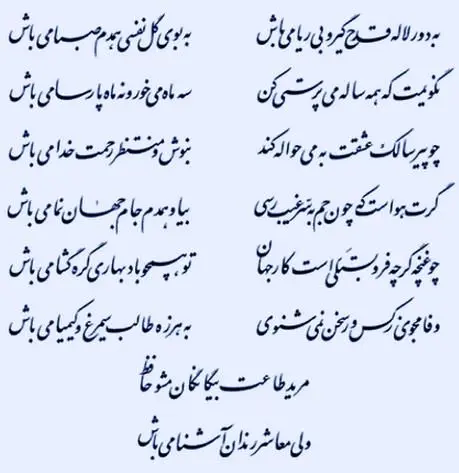 به دور لاله قدح گیر و بی‌ریا می‌باش به بوی گل نفسی همدم صبا می‌باش
نگویمت که همه ساله می پرستی کن سه ماه می خور و نه ماه پارسا می‌باش
چو پیر سالک عشقت به می حواله کند بنوش و منتظر رحمت خدا می‌باش
گرت هواست که چون جم به سر غیب رسی بیا و همدم جام جهان نما می‌باش
چو غنچه گرچه فروبستگی است کار جهان تو همچو باد بهاری گره گشا می‌باش
وفا مجوی ز کس ور سخن نمی شنوی به هرزه طالب سیمرغ و کیمیا می‌باش
مرید طاعت بیگانگان مشو حافظ
ولی معاشر رندان آشنا می‌باش